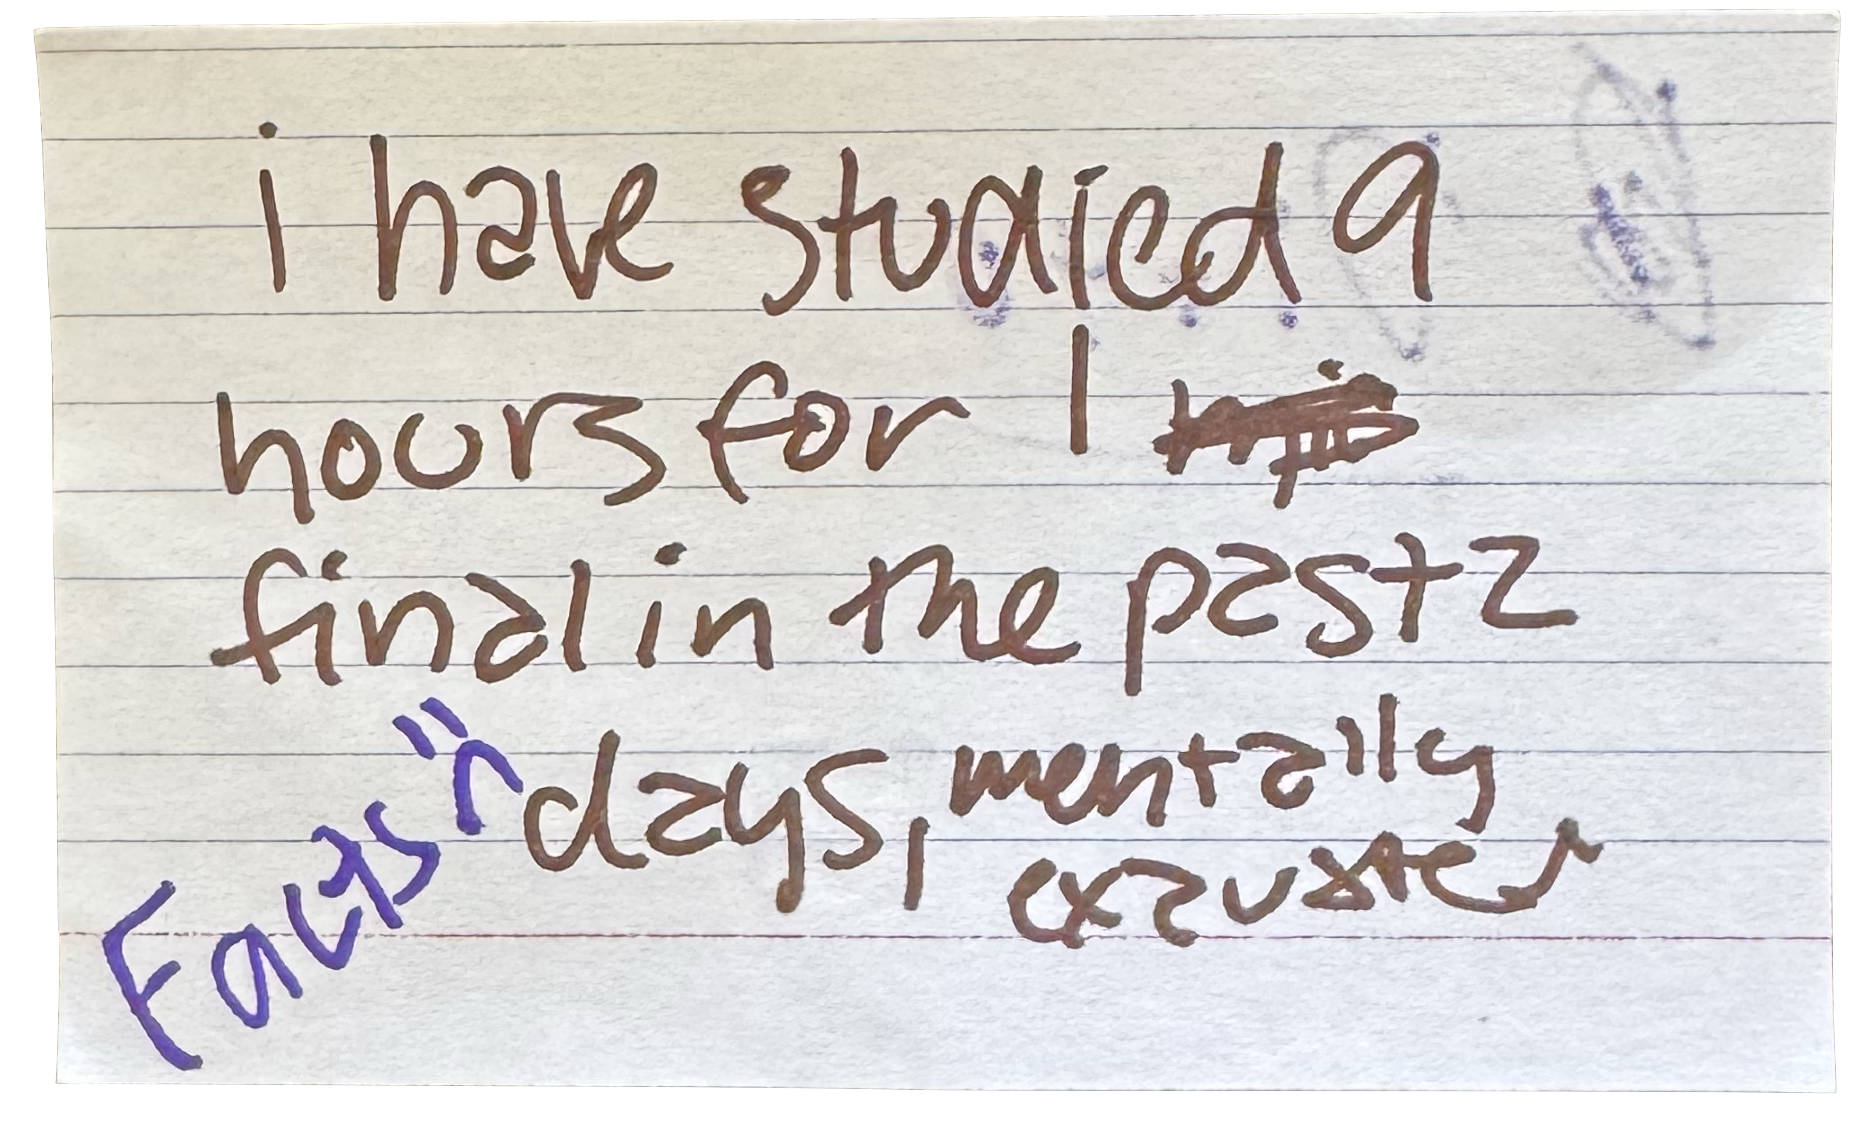 i have studied 9
hours for 1
final in the past 2
days, mentally
exausted
Facts :(